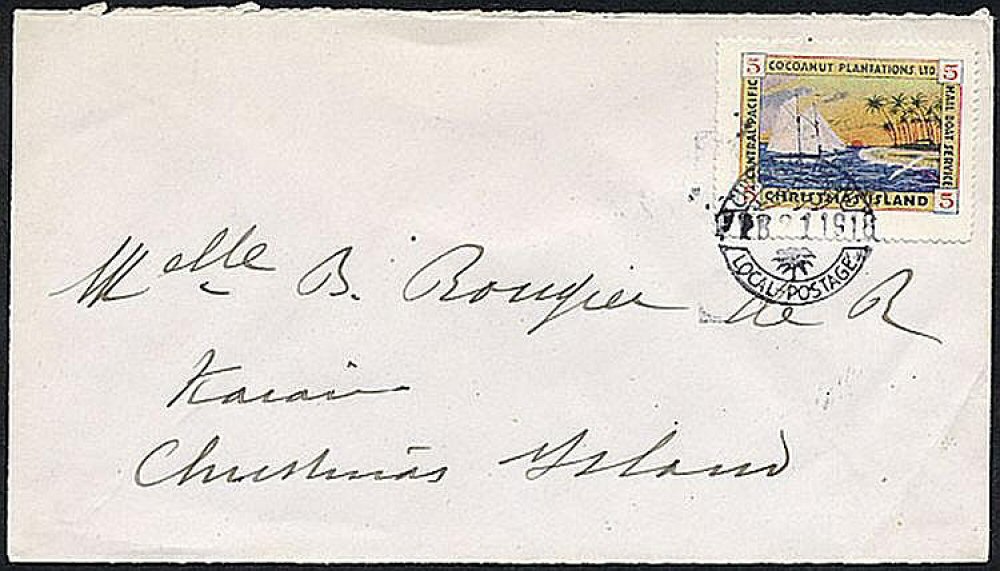 5 COCOANUT PLANTATIONS LTD. 5
CENTRAL PACIFIC
MAIL BOAT SERVICE
5 CHRISTMAS ISLAND 5
1918
LOCAL POSTAGE
Melle B. Rougier de R
Christmas Island